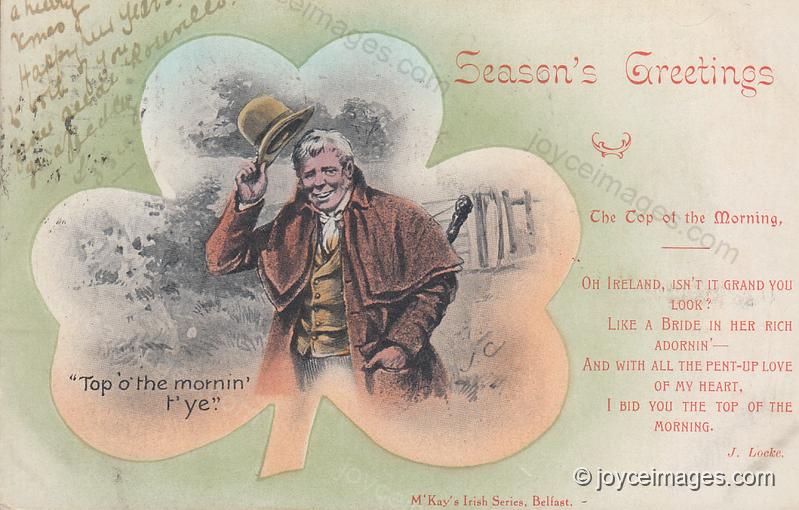 a
Xmas &
Happy New Year
to both of you
Season's Greetings
The Top of the Morning,
Oh Ireland, isn't it grand you
look?
Like a Bride in her rich
adornin'—
And with all the pent-up love
of my heart,
I bid you the top of the
morning.
J. Locke.
"Top 'o' the mornin'
t'ye".
JC
M'Kay's Irish Series, Belfast.
© joyceimages.com
joyceimages.com
joyceimages.com